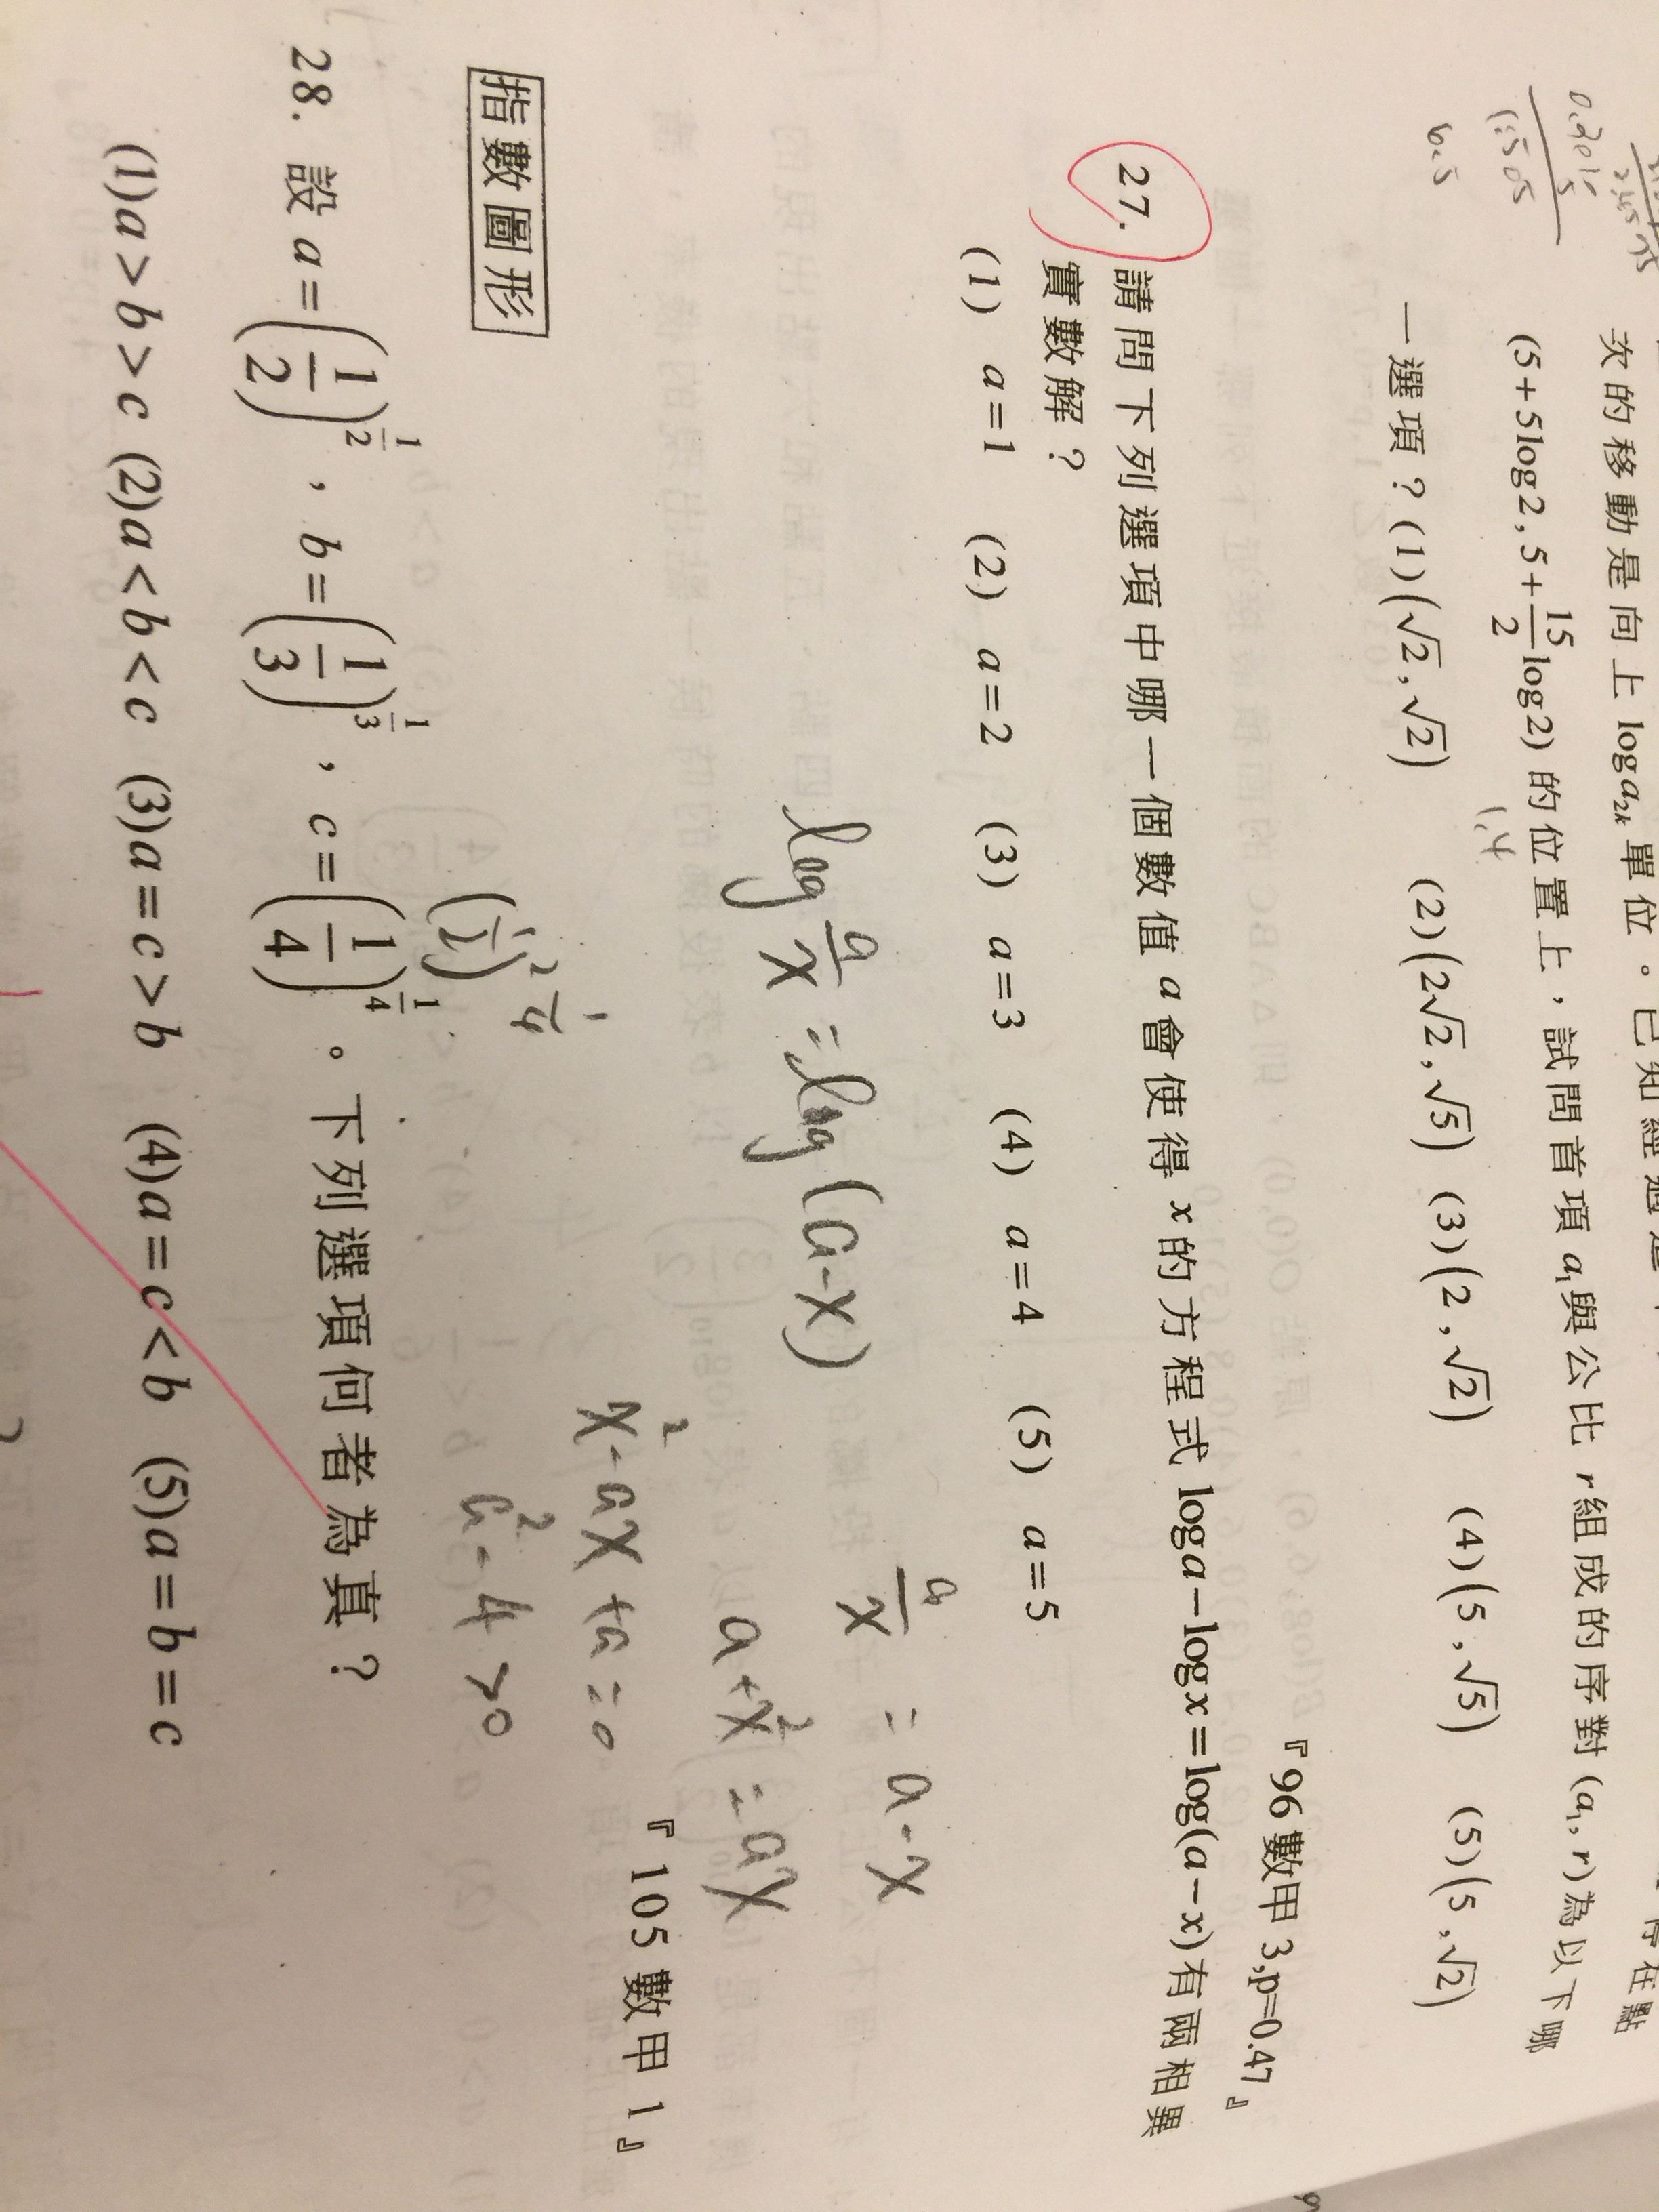 次的移動是向上 log a₂ₖ 單位。已知經過
(5+5log2, 5+15/2 log2) 的位置上，試問首項 a₁ 與公比 r 組成的序對 (a₁, r) 為以下哪
一選項？(1)(√2, √2) (2)(2√2, √5) (3)(2, √2) (4)(5, √5) (5)(5, √2)
1.4
『96 數甲 3,p=0.47』
27. 請問下列選項中哪一個數值 a 會使得 x 的方程式 log a − log x = log(a − x) 有兩相異
實數解？
(1) a=1 (2) a=2 (3) a=3 (4) a=4 (5) a=5
a/x = a-x
log a/x = log (a-x)
a+x² = ax
x²-ax+a=0
a²-4>0
『105 數甲 1』
指數圖形
(1/2)^2^1/4
28. 設 a=(1/2)^(1/2)，b=(1/3)^(1/3)，c=(1/4)^(1/4)。下列選項何者為真？
(1)a>b>c (2)a<b<c (3)a=c>b (4)a=c<b (5)a=b=c